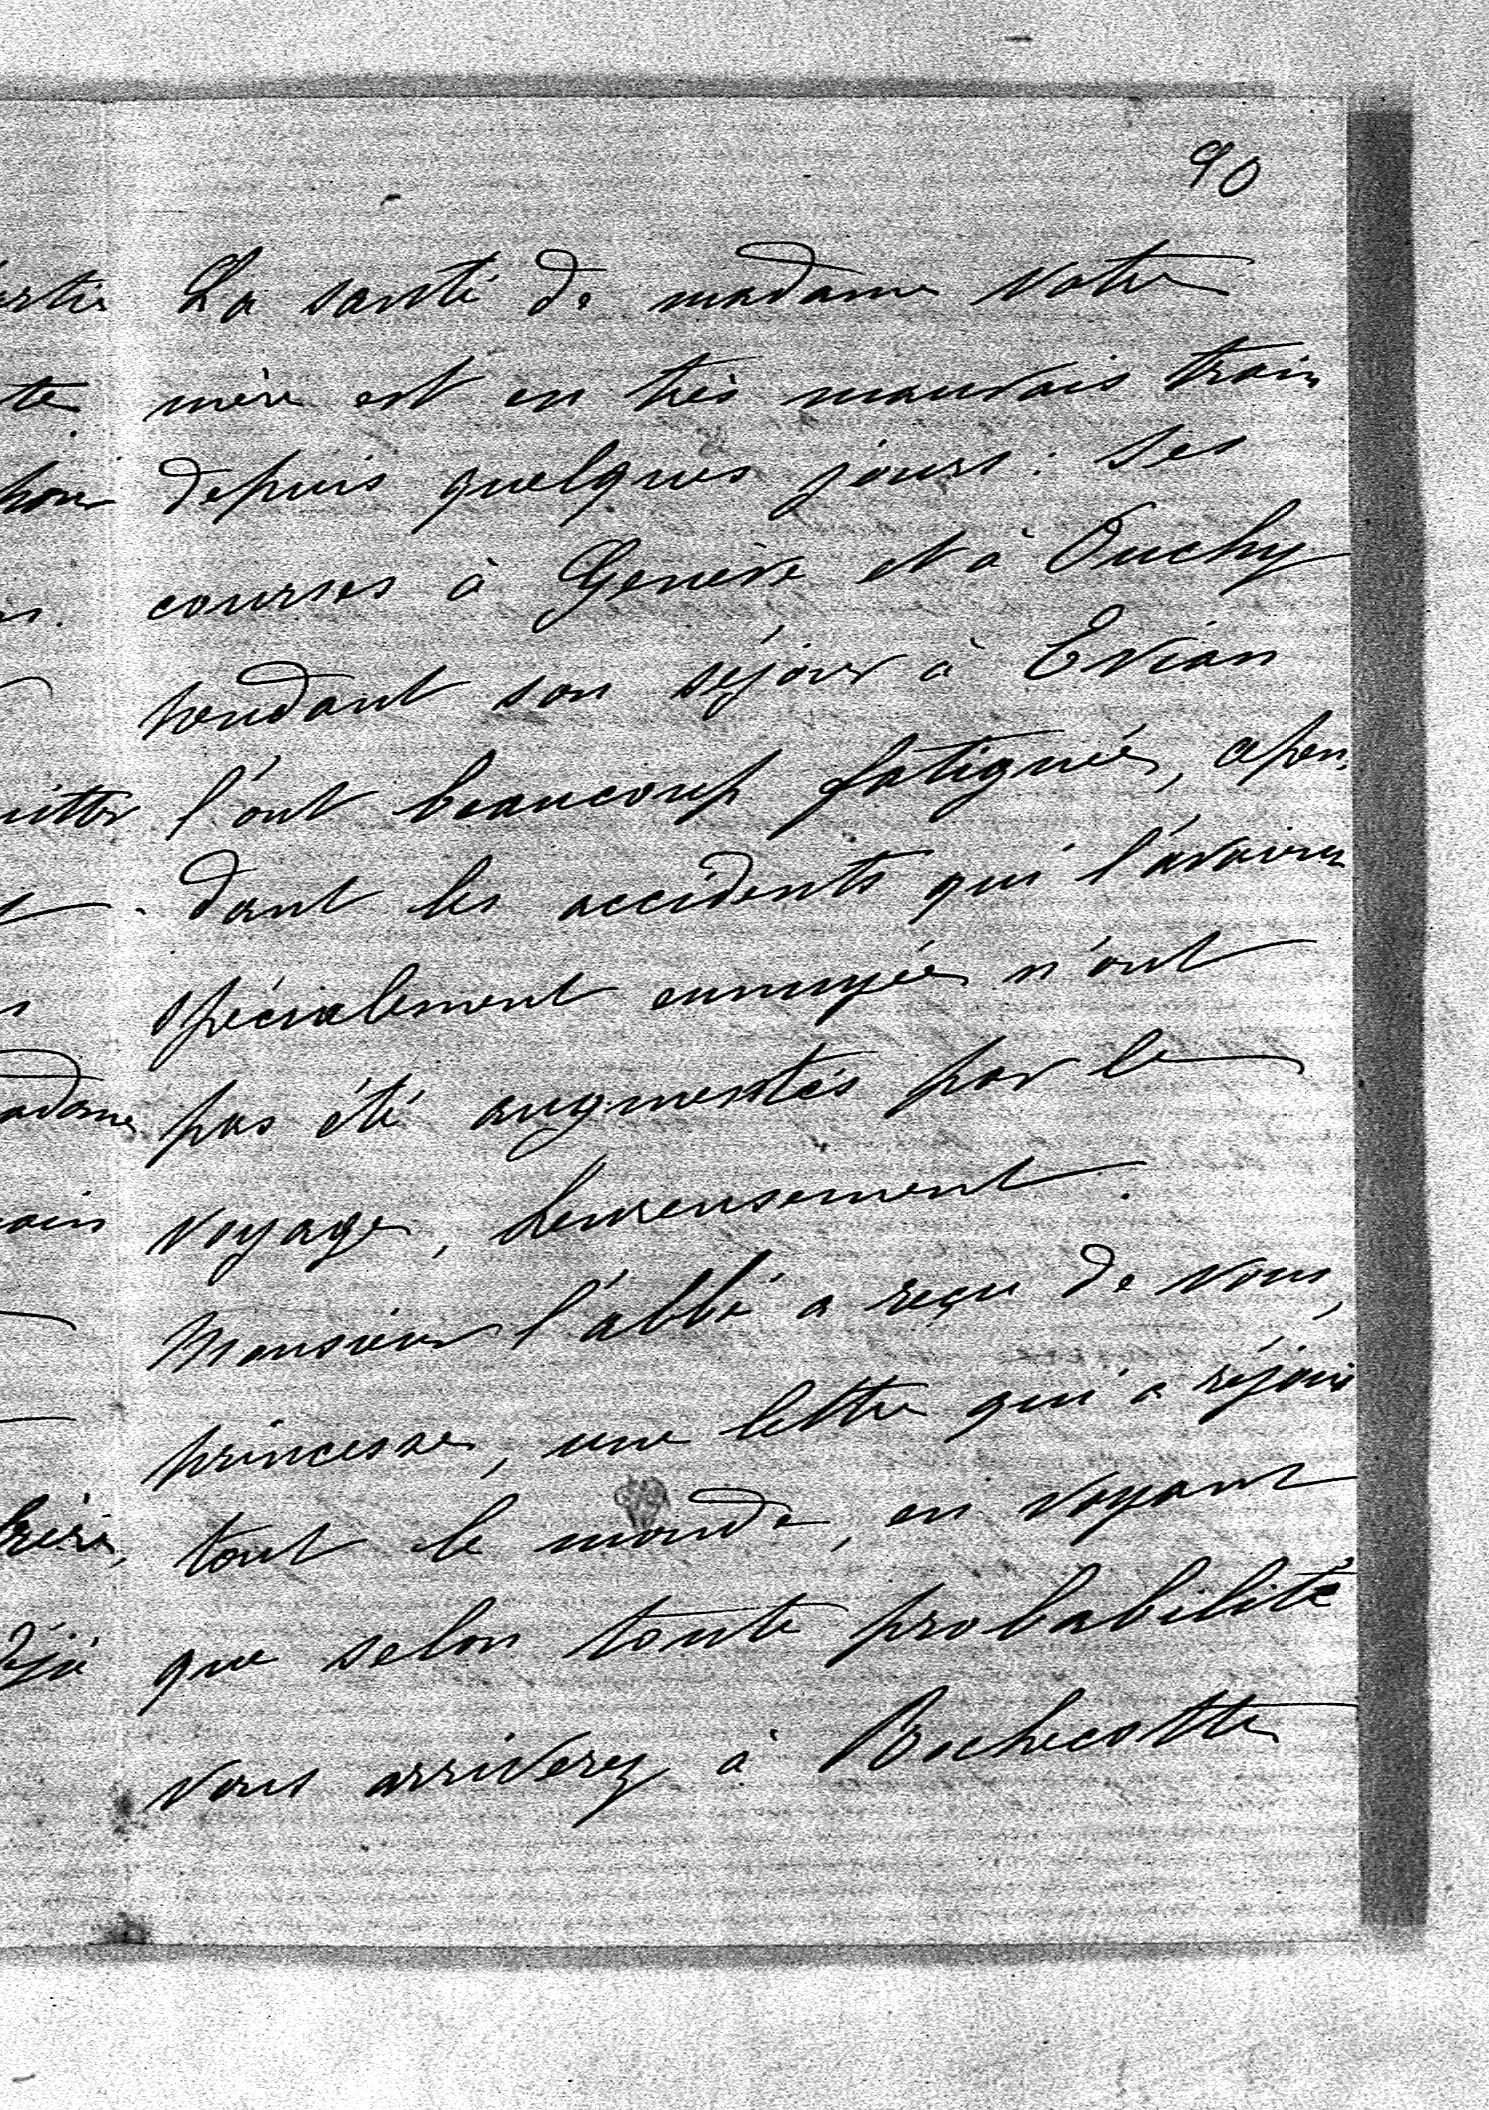 90
La santé de madame votre
mère est en très mauvais train
depuis quelques jours : ses
courses à Genève et à Ouchy
pendant son séjour à Evian
l'ont beaucoup fatiguée, cepen-
dant les accidents qui l'avaient
spécialement ennuyée n'ont
pas été augmentés par le
voyage, heureusement.
Monsieur l'abbé a reçu de vous,
princesse, une lettre qui a réjoui
tout le monde, en voyant
que selon toute probabilité
vous arriverez à Rochecotte